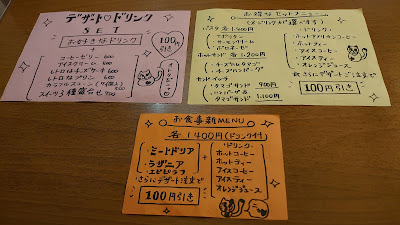 デザート♡ドリンク
SET
お好きなドリンク
+
100円引き
コーヒーゼリー 600
アイスクリーム 600
レトロなチーズケーキ 600
レトロなプリン 600
スイーツ3種盛合せ 900
お得なセットメニュー
(ドリンクが選べます)
パスタ 各1,400円
・ナポリタン
・ボロネーゼ
ホットサンド 各1,200円
・チーズハムタマゴ
・チーズハンバーグ
サンドイッチ
・タマゴサンド 900円
・ハンバーグ&
タマゴサンド 1,100円
・ドリンク・
ホットコーヒー
ホットティー
アイスコーヒー
アイスティー
オレンジジュース
さらにデザート注文で
100円引き
お食事新MENU
各1400円(ドリンク付)
・ミートドリア
・ラザニア
・エビピラフ
+
・ドリンク・
ホットコーヒー
ホットティー
アイスコーヒー
アイスティー
オレンジジュース
さらにデザート注文で
100円引き